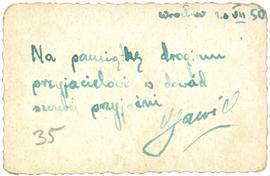 Wrocław 20 VII 50
Na pamiątkę drogiemu
przyjacielowi w dowód
szczerej przyjaźni
35